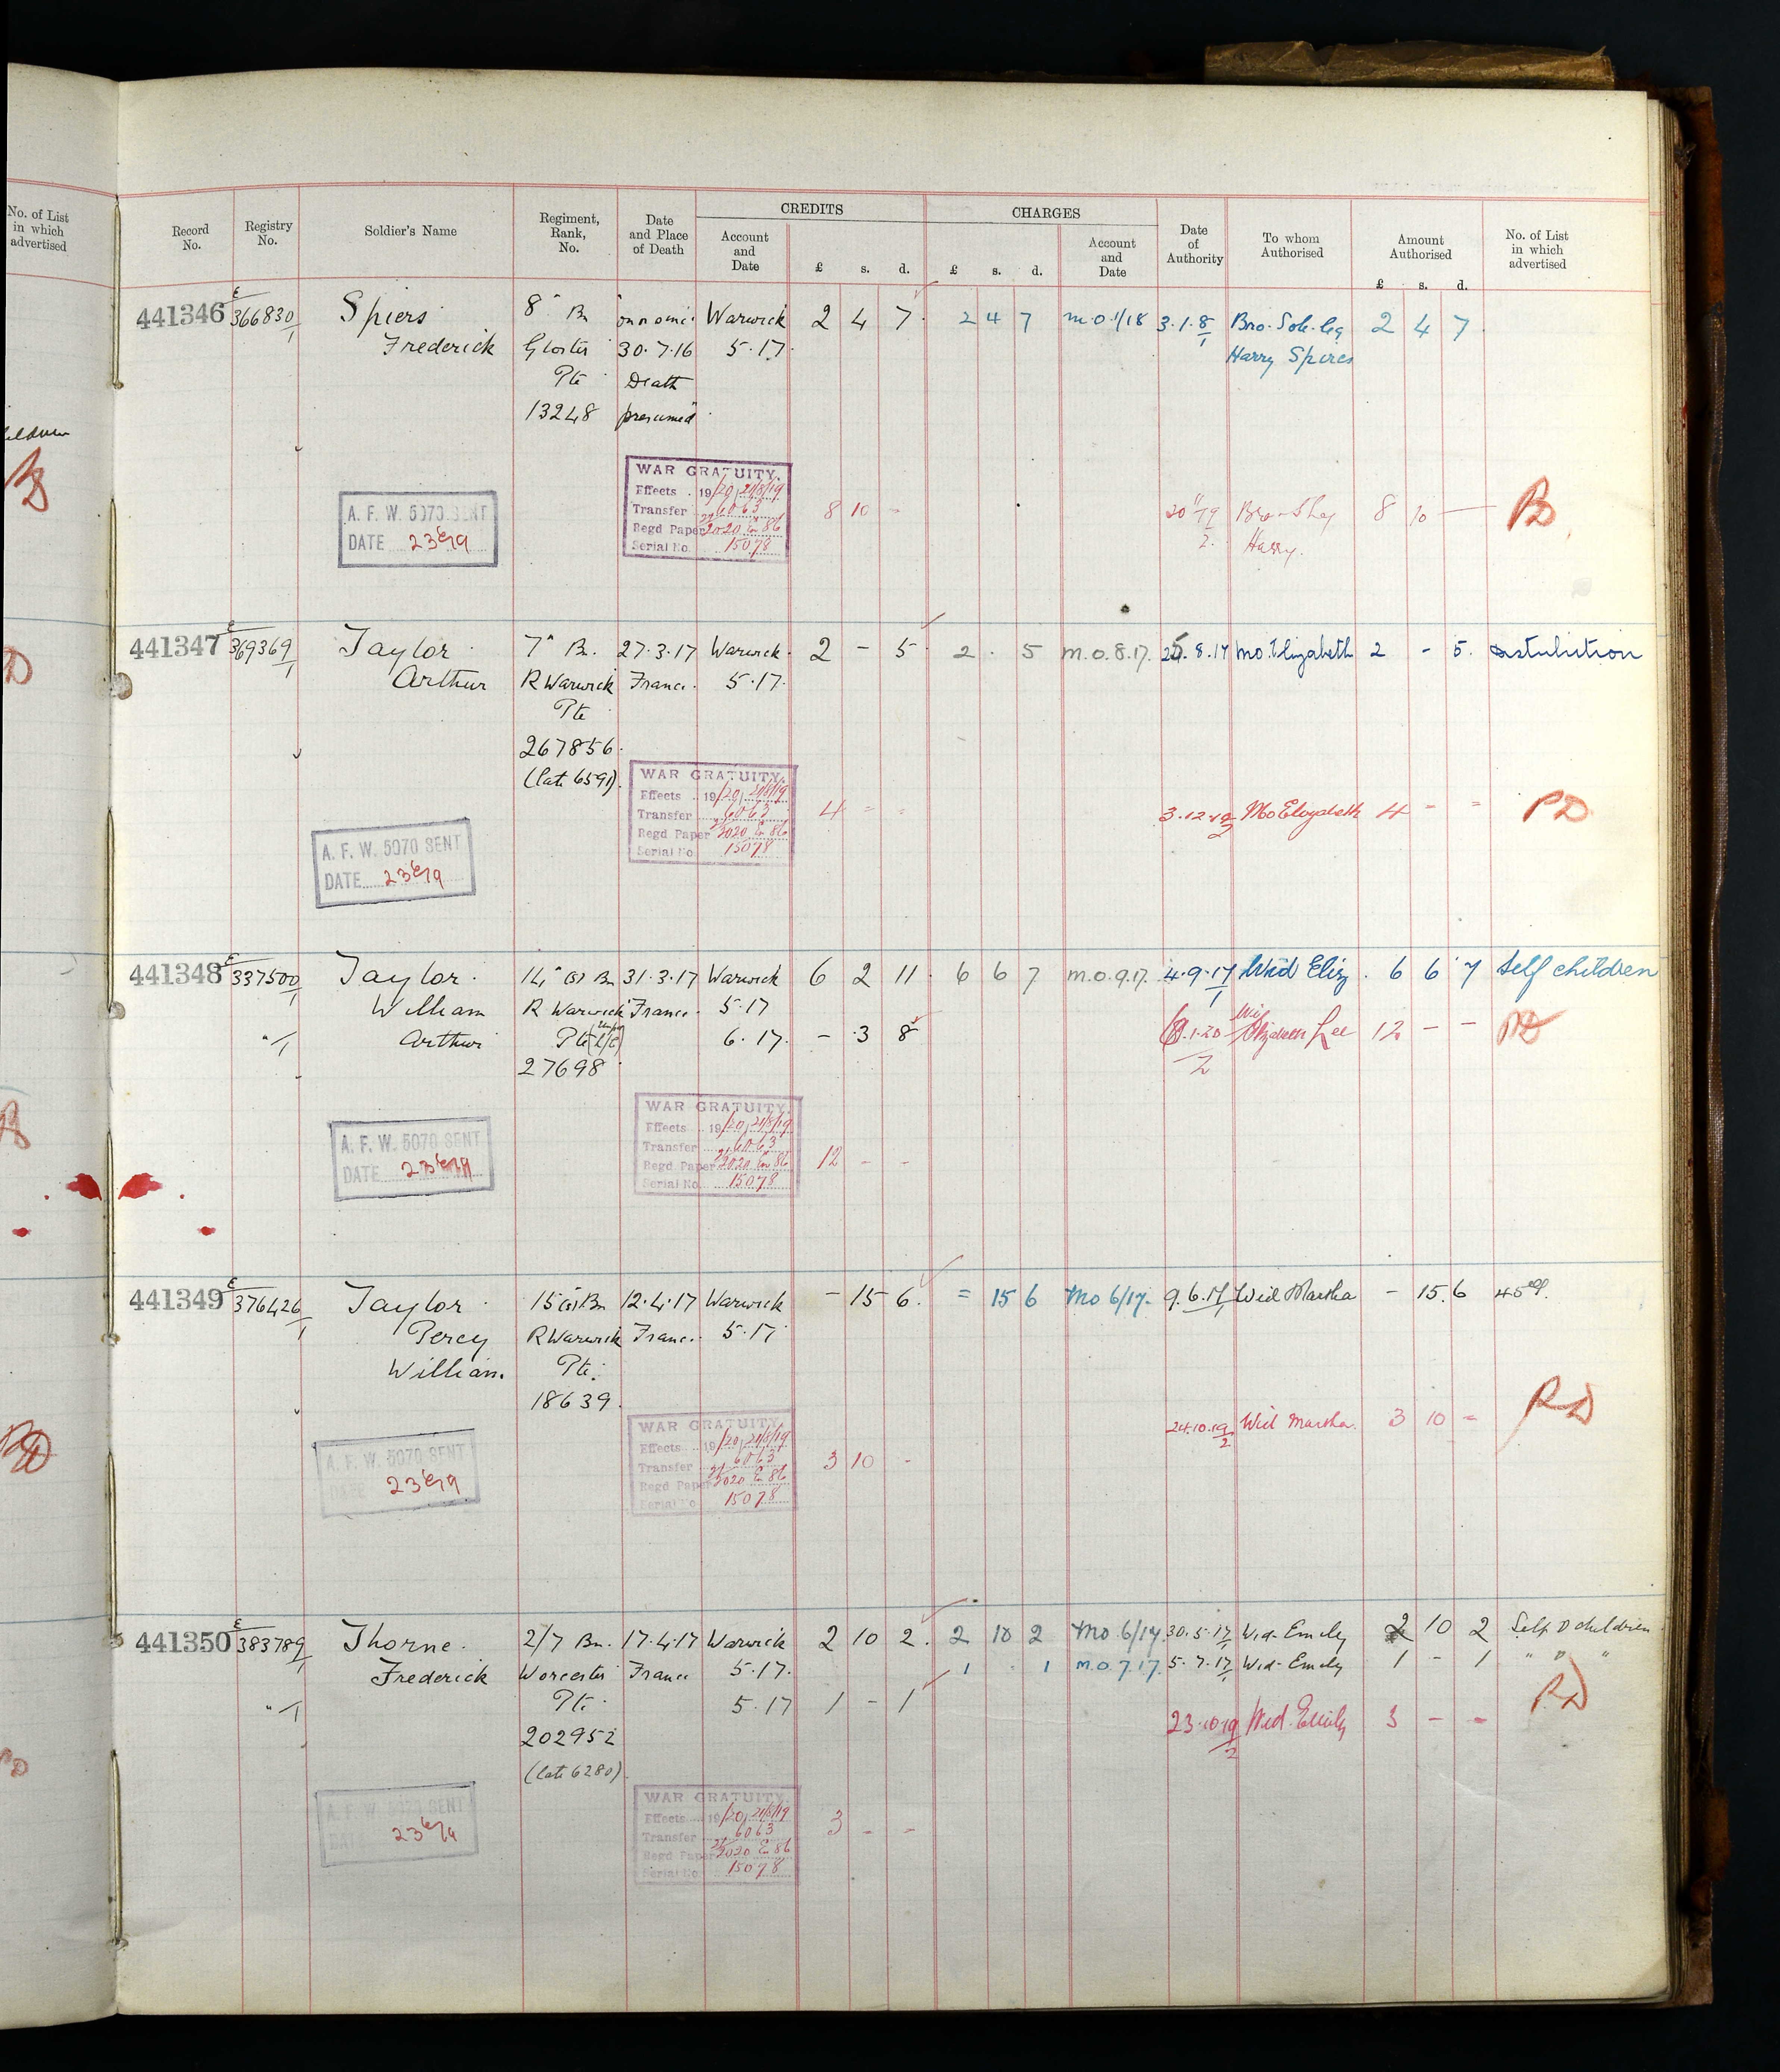 No. of List
in which
advertised
Record
No.
Registry
No.
Soldier's Name
Regiment,
Rank,
No.
Date
and Place
of Death
CREDITS
Account
and
Date
£ s. d.
CHARGES
£ s. d.
Account
and
Date
Date
of
Authority
To whom
Authorised
Amount
Authorised
£ s. d.
No. of List
in which
advertised
441346 E 366830/1 Spiers 8" Bn on or since Warwick 2 4 7 2 4 7 m.o.1/18 3.1.8/1 Bro. Sole Leg 2 4 7
Frederick Gloster 30.7.16 5.17. Harry Spires
Pte Death
13248 presumed
WAR GRATUITY.
Effects 19/20, 21/8/19
Transfer 6063
Regd Paper 2020 E 86
Serial No. 15078
8 10 -
A. F. W. 5070 SENT
DATE
Harry.
8 10 -
441347 E 369369/1 Taylor 7" Bn. 27.3.17 Warwick 2 - 5 2 . 5 m.o.8.17. 25.8.17 Mo. Elizabeth 2 - 5.
Arthur R Warwick France. 5.17.
Pte
267856.
(late 6591)
WAR GRATUITY.
Effects 19/20, 21/8/19
Transfer 6063
Regd Paper 2020 E 86
Serial No 15078
4 - -
3.12.19/2 Mo Elizabeth 4 - - PD
A. F. W. 5070 SENT
DATE
441348 E 337500/1 Taylor. 14" (S) Bn 31.3.17 Warwick 6 2 11 6 6 7 m.o.9.17. 4.9.17/1 Wid Eliz. 6 6 7 Self children
William R Warwick France. 5.17
Arthur Pte 6.17. - 3 8 12 - -
27698
WAR GRATUITY.
Effects 19/20, 21/8/19
Transfer 6063
Regd Paper 2020 E 86
Serial No. 15078
12 - -
A. F. W. 5070 SENT
DATE
441349 E 376426/1 Taylor 15 (S) Bn 12.4.17 Warwick - 15 6. = 15 6 Mo 6/17. 9.6.17/1 Wid Martha - 15.6
Percy R Warwick France. 5.17
William. Pte.
18639.
WAR GRATUITY
Effects 19/20, 21/8/19
Transfer 6063
Regd Paper 2020 E 86
Serial No 15078
3 10 -
24.10.19/2 Wid Martha. 3 10 - PD
A. F. W. 5070 SENT
DATE
441350 E 383789/1 Thorne. 2/7 Bn. 17.4.17 Warwick 2 10 2. 2 10 2 Mo 6/17 30.5.17/1 Wid- Emily 2 10 2 Self & children
Frederick Worcester France 5.17. 1 . 1 m.o.7.17. 5.7.17/1 Wid- Emily 1 - 1 " " "
Pte. 5.17 1 - 1 PD
202952 23.10.19/2 Wid. Emily 3 - -
(late 6280)
WAR GRATUITY.
Effects 19/20, 21/8/19
Transfer 6063
Regd Paper 2020 E 86
Serial No 15078
3 - -
A. F. W. 5070 SENT
DATE